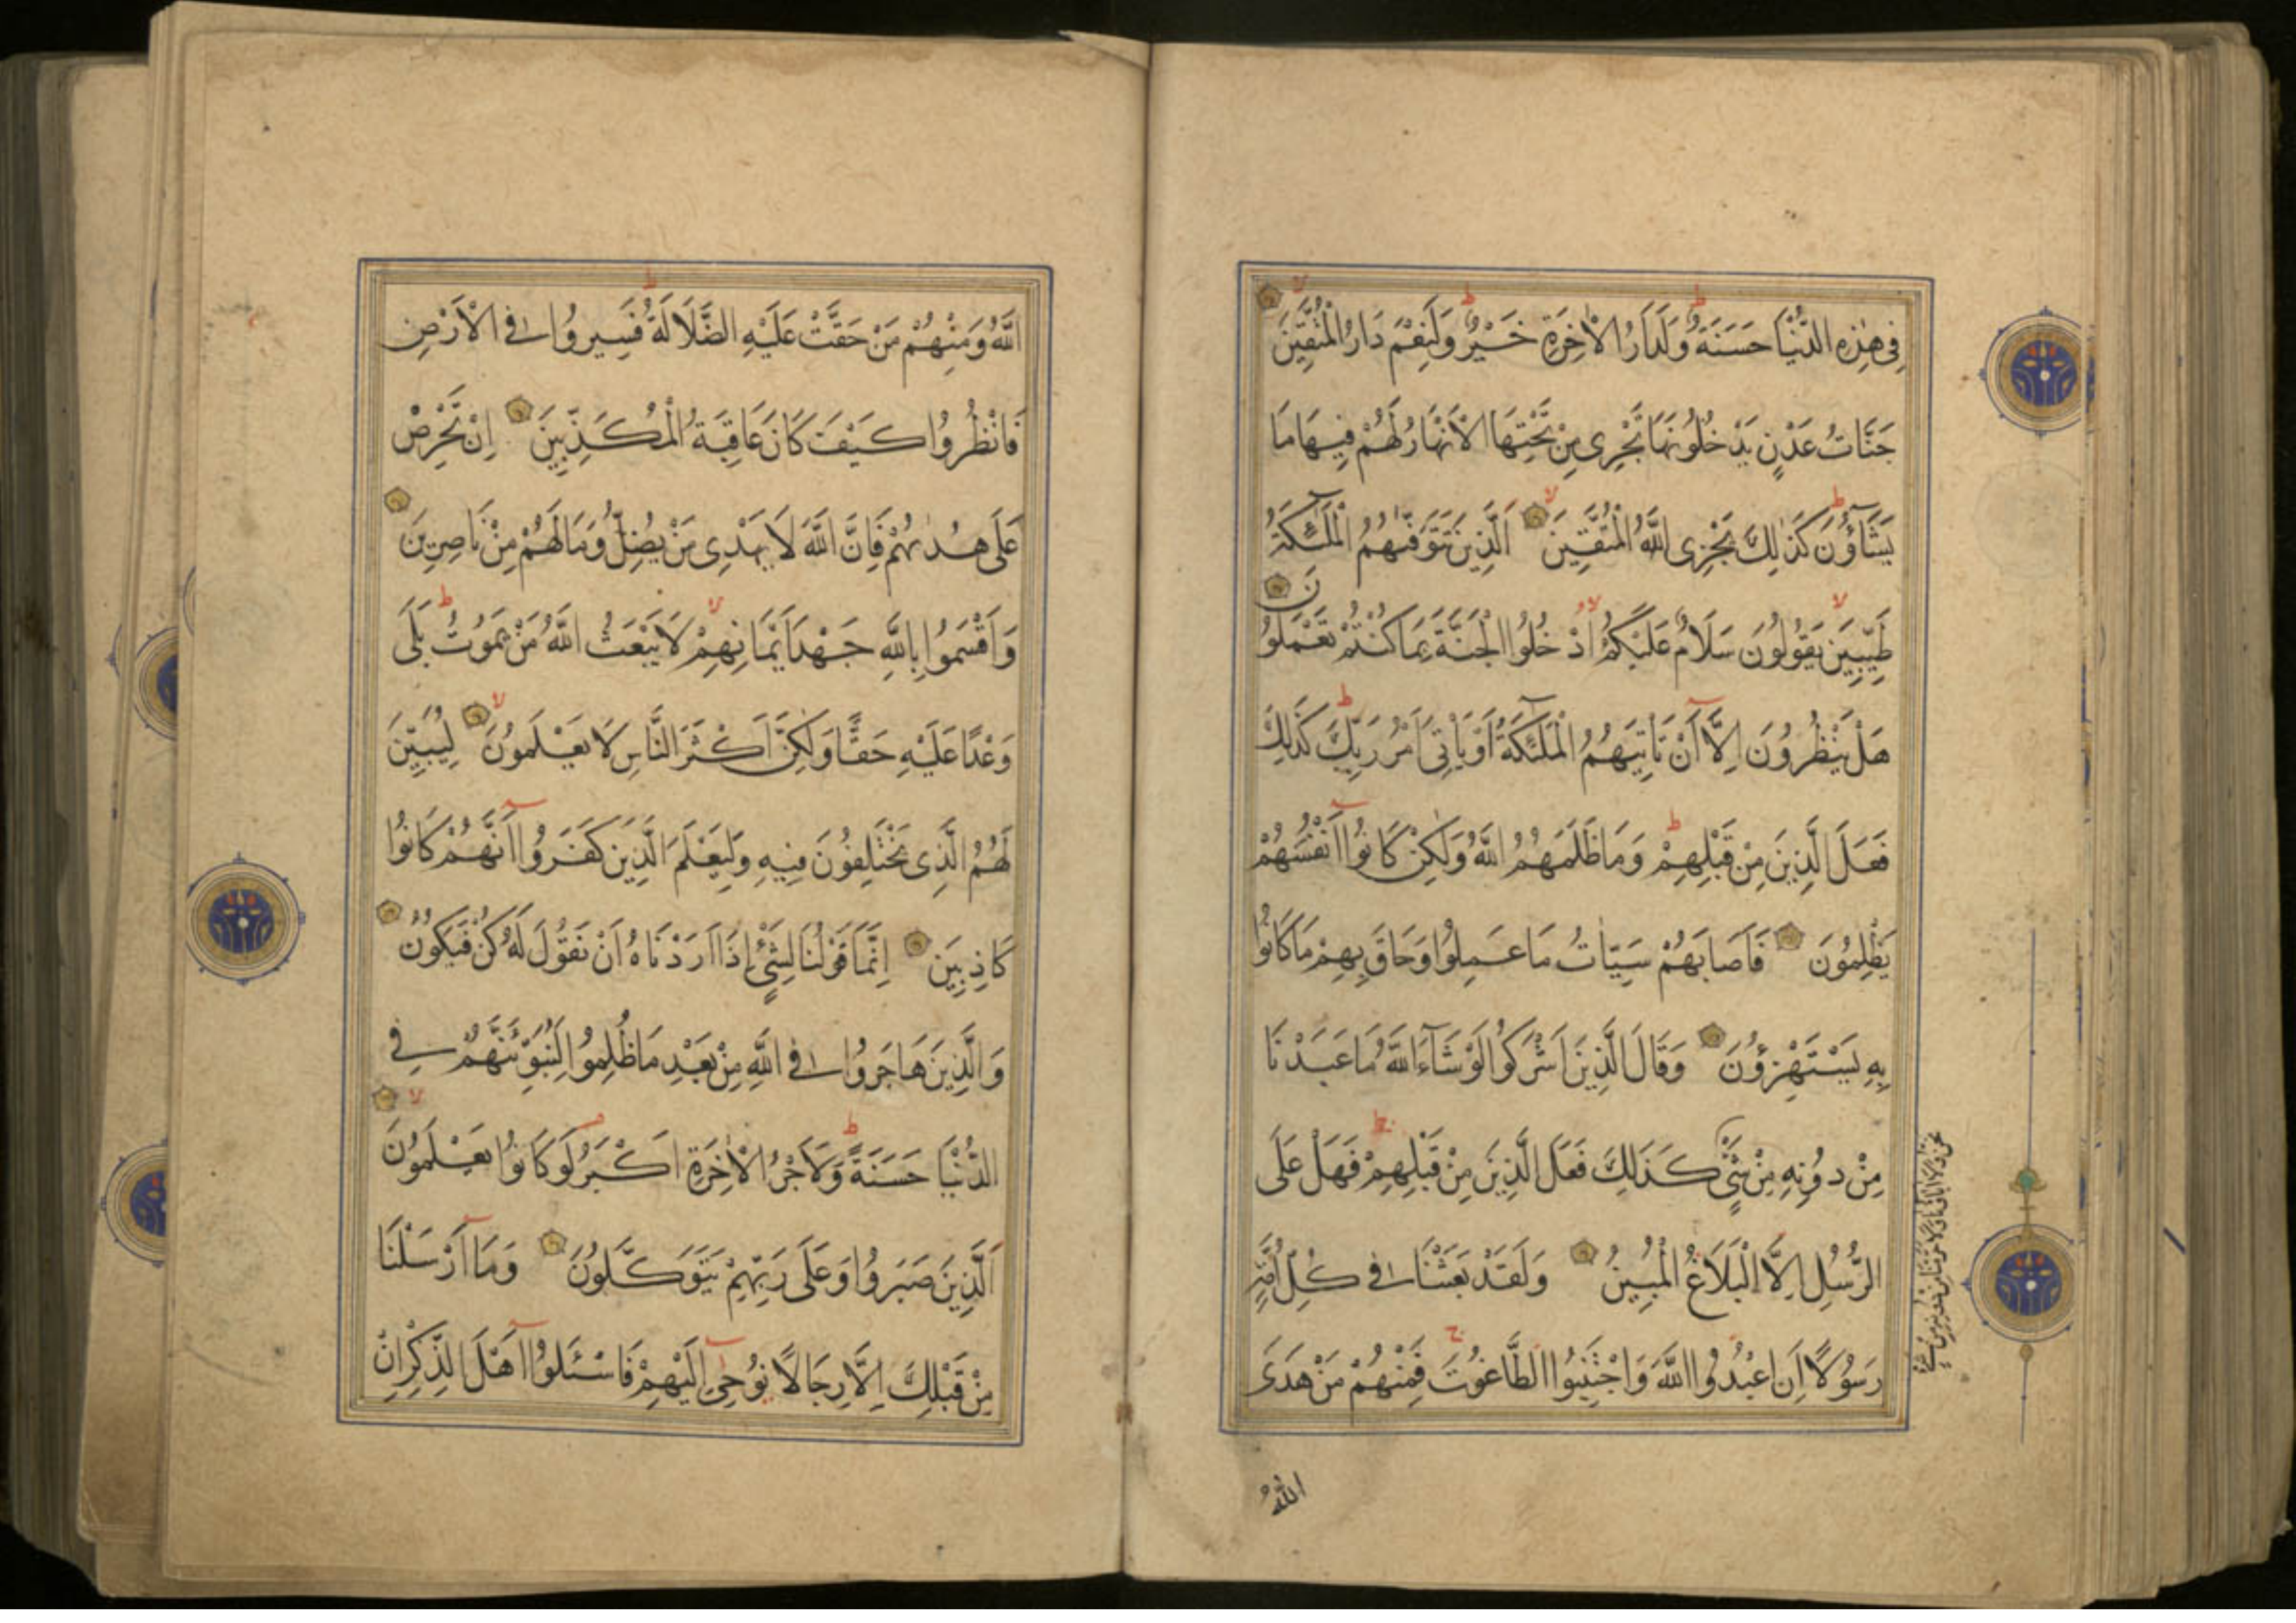 فِى هٰذِهِ الدُّنْيَا حَسَنَةٌ وَلَدَارُ الْاٰخِرَةِ خَيْرٌ وَلَنِعْمَ دَارُ الْمُتَّقِينَ
جَنَّاتُ عَدْنٍ يَدْخُلُونَهَا تَجْرِى مِنْ تَحْتِهَا الْاَنْهَارُ لَهُمْ فِيهَا مَا
يَشَآؤُنَ كَذٰلِكَ يَجْزِى اللَّهُ الْمُتَّقِينَ اَلَّذِينَ تَتَوَفّٰىهُمُ الْمَلٰٓئِكَةُ
طَيِّبِينَ يَقُولُونَ سَلَامٌ عَلَيْكُمُ ادْخُلُوا الْجَنَّةَ بِمَا كُنْتُمْ تَعْمَلُونَ
هَلْ يَنْظُرُونَ اِلَّآ اَنْ تَاْتِيَهُمُ الْمَلٰٓئِكَةُ اَوْ يَاْتِىَ اَمْرُ رَبِّكَ كَذٰلِكَ
فَعَلَ الَّذِينَ مِنْ قَبْلِهِمْ وَمَا ظَلَمَهُمُ اللَّهُ وَلٰكِنْ كَانُوٓا اَنْفُسَهُمْ
يَظْلِمُونَ فَاَصَابَهُمْ سَيِّاٰتُ مَا عَمِلُوا وَحَاقَ بِهِمْ مَا كَانُوا
بِهِ يَسْتَهْزِؤُنَ وَقَالَ الَّذِينَ اَشْرَكُوا لَوْ شَآءَ اللَّهُ مَا عَبَدْنَا
مِنْ دُونِهِ مِنْ شَىْءٍ كَذٰلِكَ فَعَلَ الَّذِينَ مِنْ قَبْلِهِمْ فَهَلْ عَلَى
الرُّسُلِ اِلَّا الْبَلَاغُ الْمُبِينُ وَلَقَدْ بَعَثْنَا فِى كُلِّ اُمَّةٍ
رَسُولًا اَنِ اعْبُدُوا اللَّهَ وَاجْتَنِبُوا الطَّاغُوتَ فَمِنْهُمْ مَنْ هَدَى
اللَّهُ
نَحْنُ وَلَآ اٰبَاؤُنَا وَلَا حَرَّمْنَا مِنْ دُونِهِ مِنْ شَىْءٍ
اللَّهُ وَمِنْهُمْ مَنْ حَقَّتْ عَلَيْهِ الضَّلَالَةُ فَسِيرُوا فِى الْاَرْضِ
فَانْظُرُوا كَيْفَ كَانَ عَاقِبَةُ الْمُكَذِّبِينَ اِنْ تَحْرِصْ
عَلَى هُدٰىهُمْ فَاِنَّ اللَّهَ لَا يَهْدِى مَنْ يُضِلُّ وَمَا لَهُمْ مِنْ نَاصِرِينَ
وَاَقْسَمُوا بِاللَّهِ جَهْدَ اَيْمَانِهِمْ لَا يَبْعَثُ اللَّهُ مَنْ يَمُوتُ بَلَى
وَعْدًا عَلَيْهِ حَقًّا وَلٰكِنَّ اَكْثَرَ النَّاسِ لَا يَعْلَمُونَ لِيُبَيِّنَ
لَهُمُ الَّذِى يَخْتَلِفُونَ فِيهِ وَلِيَعْلَمَ الَّذِينَ كَفَرُوٓا اَنَّهُمْ كَانُوا
كَاذِبِينَ اِنَّمَا قَوْلُنَا لِشَىْءٍ اِذَآ اَرَدْنَاهُ اَنْ نَقُولَ لَهُ كُنْ فَيَكُونُ
وَالَّذِينَ هَاجَرُوا فِى اللَّهِ مِنْ بَعْدِ مَا ظُلِمُوا لَنُبَوِّئَنَّهُمْ فِى
الدُّنْيَا حَسَنَةً وَلَاَجْرُ الْاٰخِرَةِ اَكْبَرُ لَوْ كَانُوا يَعْلَمُونَ
اَلَّذِينَ صَبَرُوا وَعَلَى رَبِّهِمْ يَتَوَكَّلُونَ وَمَآ اَرْسَلْنَا
مِنْ قَبْلِكَ اِلَّا رِجَالًا نُوحِىٓ اِلَيْهِمْ فَاسْئَلُوٓا اَهْلَ الذِّكْرِ اِنْ